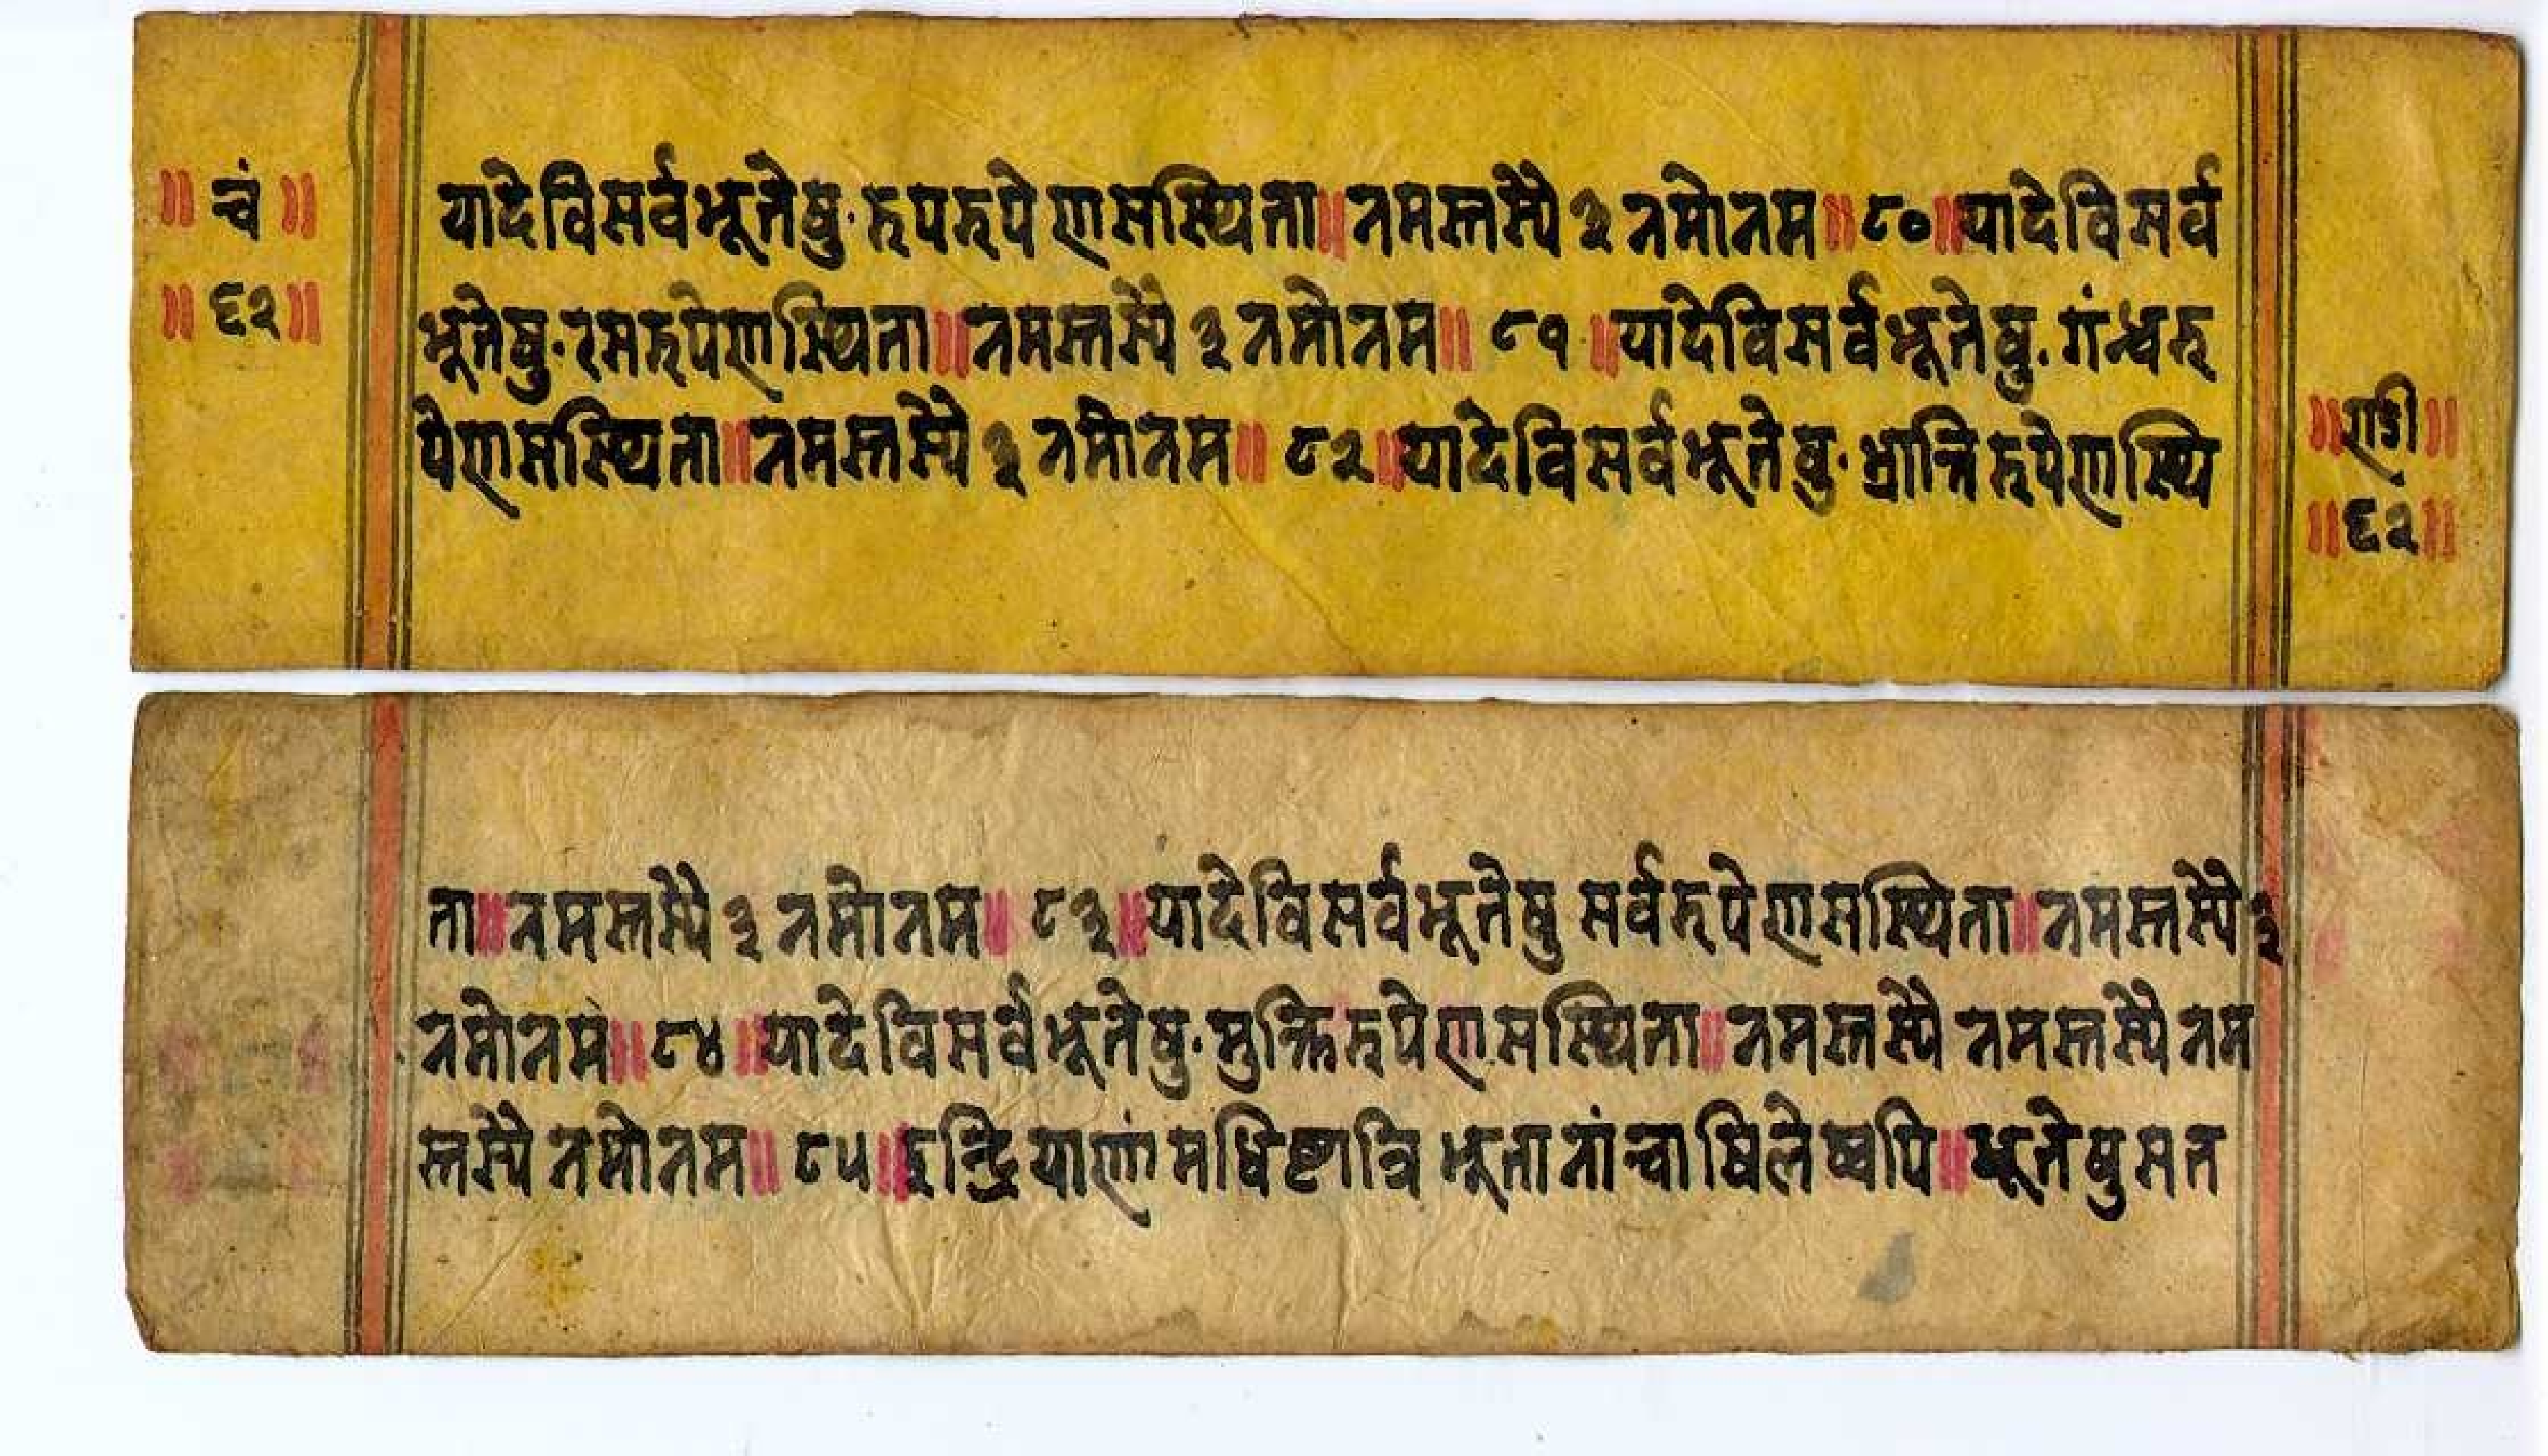 ॥ चं ॥
॥ ६२॥
यादेविसर्वभूतेषु·रुपरुपेणसस्थिता॥नमस्तस्यै ३ नमोनम॥८०॥यादेविसर्व
भूतेषु·रसरुपेणस्थिता॥नमस्तस्यै ३ नमोनम॥ ८१ ॥यादेविसर्वभूतेषु·गंन्धरु
पेणसस्थिता॥नमस्तस्यै ३ नमोनम॥ ८२॥यादेविसर्वभूतेषु·भ्रान्तिरुपेणस्थि
॥ण्डी॥
॥६२॥
ता॥नमस्तस्यै ३ नमोनम॥ ८३॥यादेविसर्वभूतेषु सर्वरुपेणसस्थिता॥नमस्तस्यै ३
नमोनम॥८४॥यादेविसर्वभूतेषु·मुक्तिरुपेणसस्थिता॥नमस्तस्यै नमस्तस्यै नम
स्तस्यै नमोनम॥ ८५॥इन्द्रियाणांमधिष्टात्रि भूतानांचाषिलेष्वपि॥भूतेषुसत